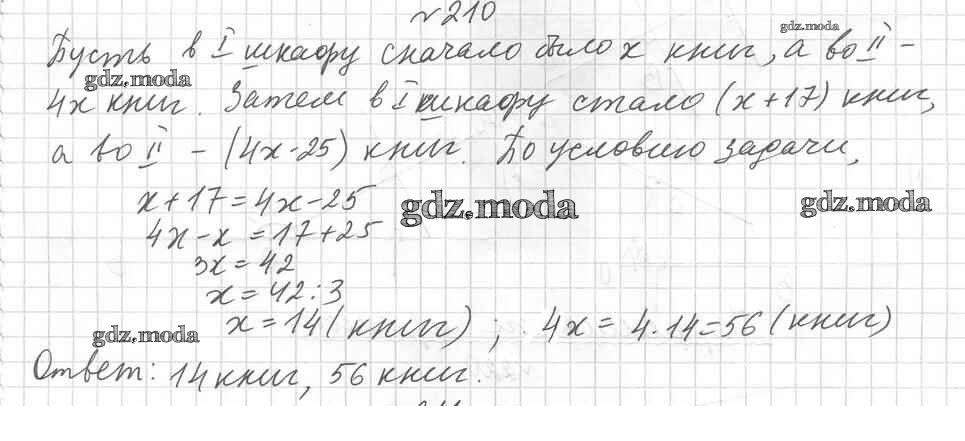 №210
Пусть в I шкафу сначало было x книг, а во II –
4x книг. Затем в I шкафу стало (x+17) книг,
а во II – (4x-25) книг. По условию задачи,
x+17=4x-25
4x-x=17+25
3x=42
x=42:3
x=14(книг); 4x=4·14=56(книг)
Ответ: 14 книг, 56 книг.
gdz.moda
gdz.moda
gdz.moda
gdz.moda
gdz.moda